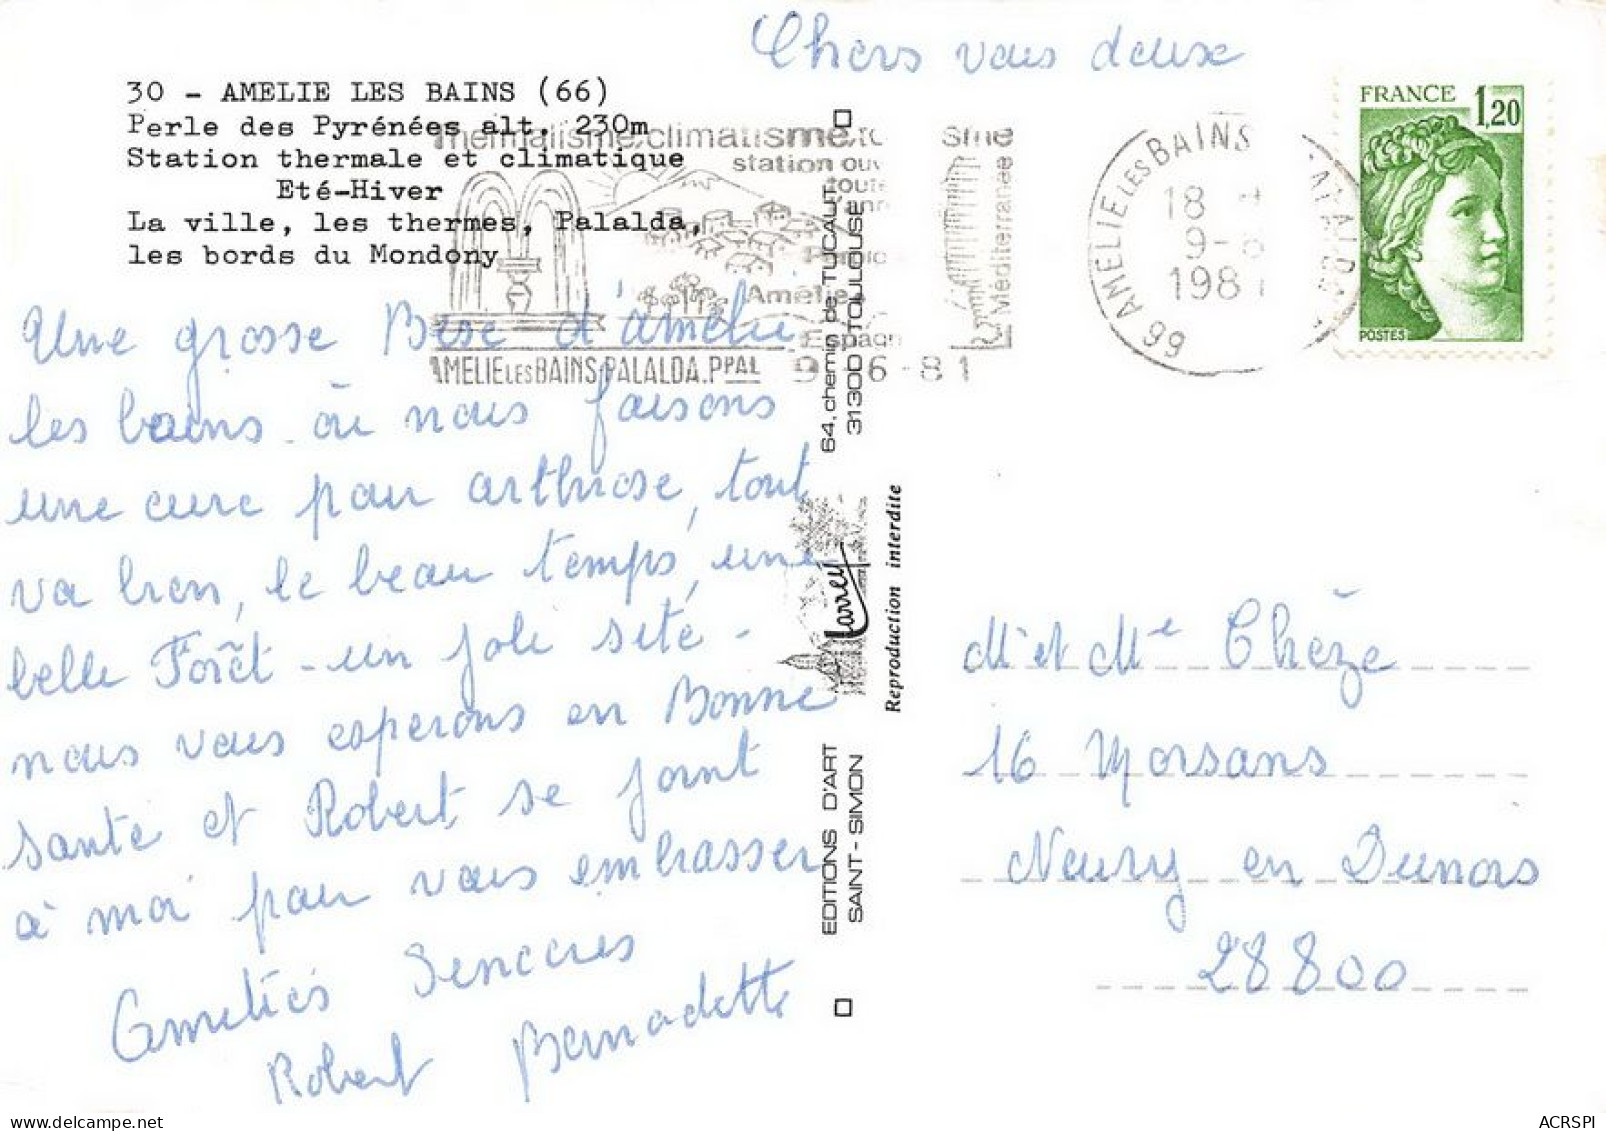 Chers vous deux
30 - AMELIE LES BAINS (66)
Perle des Pyrénées alt. 230m
Station thermale et climatique
Eté-Hiver
La ville, les thermes, Palalda,
les bords du Mondony
Thermalisme, climatisme, to sme
station ouv
toute
ann
Amélie
Espagn
Méditerranée
AMELIE LES BAINS PALALDA. PPAL 9 - 6 - 81
66 AMELIE LES BAINS PALALDA
18 H
9-6
1981
FRANCE 1,20
POSTES
Une grosse Bise d'amélie
les bains - où nous faisons
une cure pour arthrose, tout
va bien, le beau temps, une
belle Forêt - un joli site -
nous vous esperons en Bonne
santé et Robert se joint
à moi pour vous embrasser
Amitiés Sencères
Robert Bernadette
64, chemin de TUCAUT
31300 TOULOUSE
Larrey
Reproduction interdite
EDITIONS D'ART
SAINT-SIMON
Mr et Me Chèze
16 Morsans
Neuvy en Dunois
28800
delcampe.net
ACRSPI